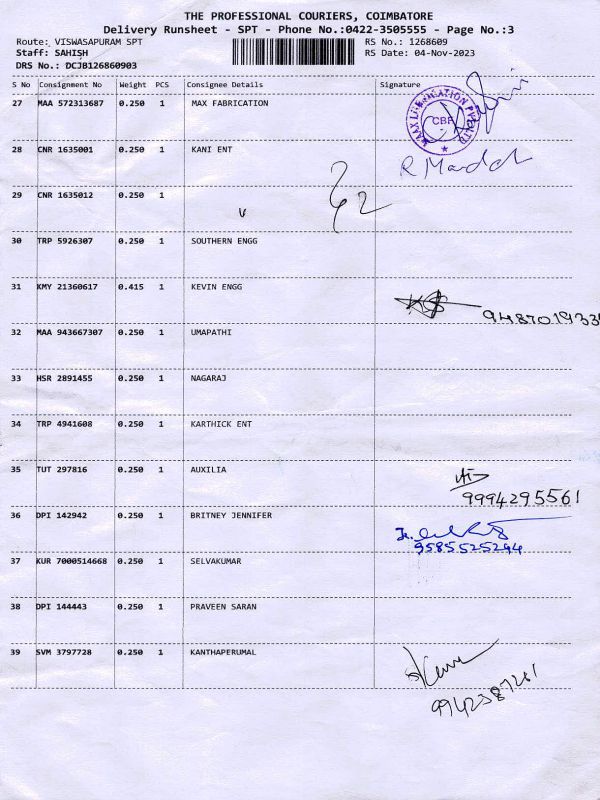 THE PROFESSIONAL COURIERS, COIMBATORE
Delivery Runsheet - SPT - Phone No.:0422-3505555 - Page No.:3
Route: VISWASAPURAM SPT RS No.: 1268609
Staff: SAHISH RS Date: 04-Nov-2023
DRS No.: DCJB126860903
S No Consignment No Weight PCS Consignee Details Signature
27 MAA 572313687 0.250 1 MAX FABRICATION
CBE
28 CNR 1635001 0.250 1 KANI ENT
29 CNR 1635012 0.250 1
30 TRP 5926307 0.250 1 SOUTHERN ENGG
31 KMY 21360617 0.415 1 KEVIN ENGG
32 MAA 943667307 0.250 1 UMAPATHI
33 HSR 2891455 0.250 1 NAGARAJ
34 TRP 4941608 0.250 1 KARTHICK ENT
35 TUT 297816 0.250 1 AUXILIA
9994295561
36 DPI 142942 0.250 1 BRITNEY JENNIFER
9585525244
37 KUR 7000514668 0.250 1 SELVAKUMAR
38 DPI 144443 0.250 1 PRAVEEN SARAN
39 SVM 3797728 0.250 1 KANTHAPERUMAL